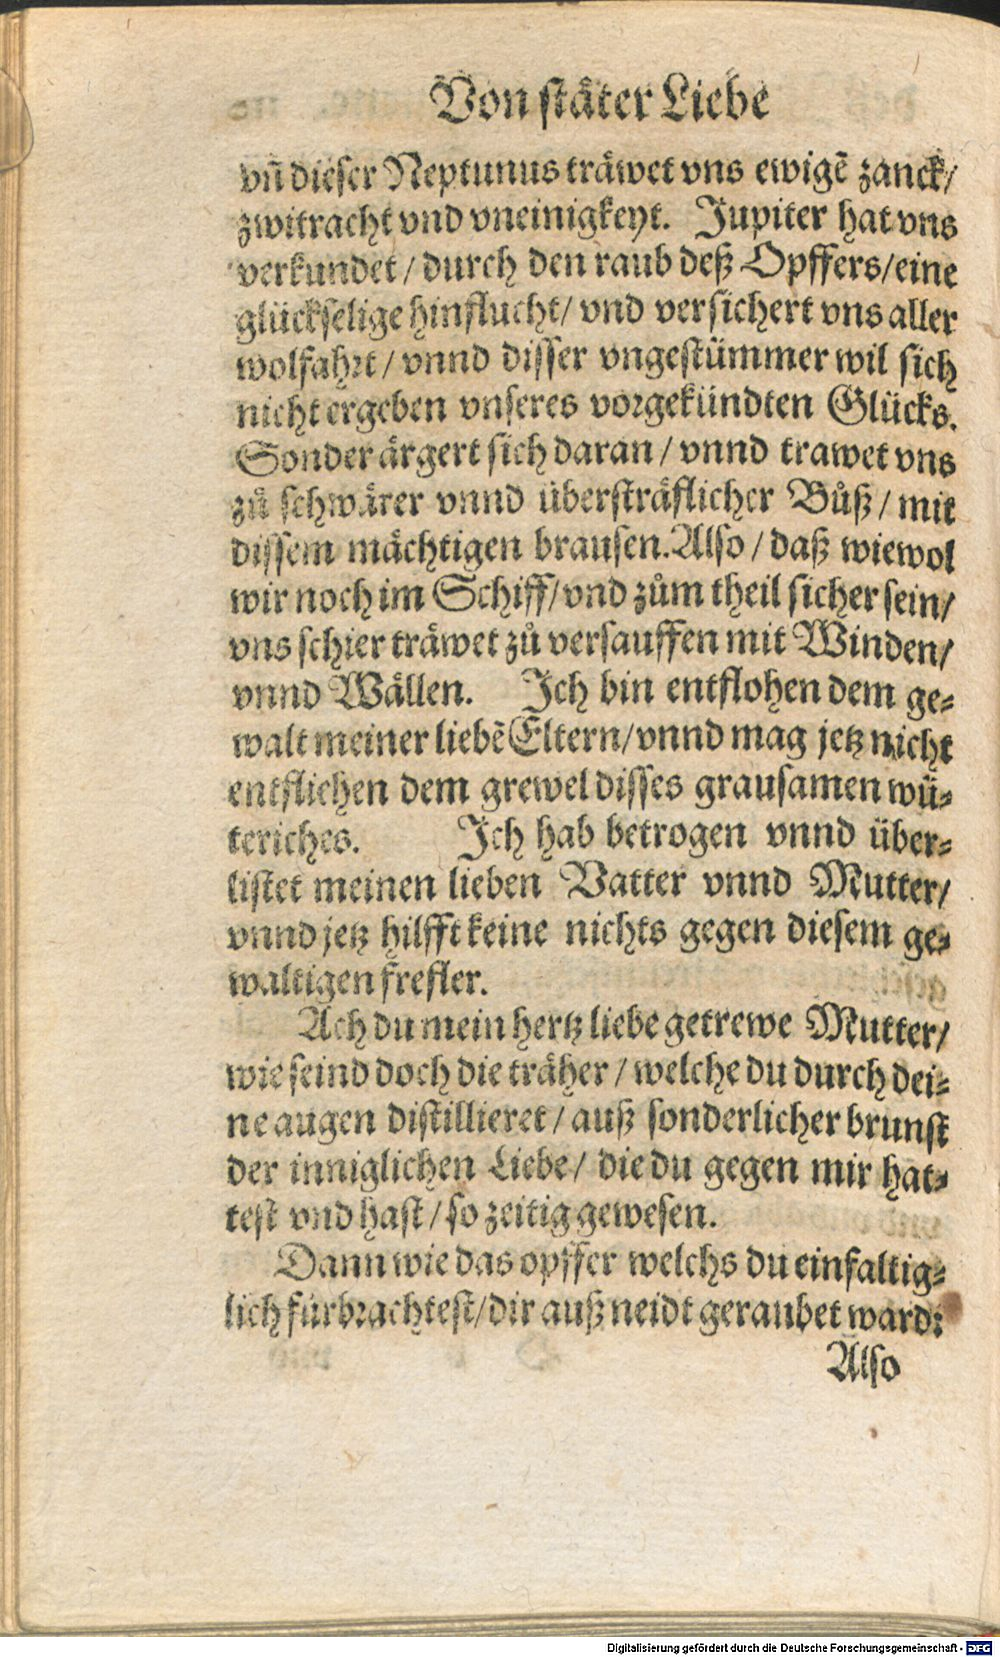 Von stäter Liebe
vñ dieser Neptunus träwet vns ewigẽ zanck/
zwitracht vnd vneinigkeyt. Jupiter hat vns
verkundet / durch den raub deß Opffers/eine
glückselige hinflucht/ vnd versichert vns aller
wolfahrt / vnnd disser vngestümmer wil sich
nicht ergeben vnseres vorgekündten Glücks.
Sonder ärgert sich daran / vnnd trawet vns
zů schwärer vnnd übersträflicher Bůß / mit
dissem mächtigen brausen. Also / daß wiewol
wir noch im Schiff/vnd zům theil sicher sein/
vns schier träwet zů versauffen mit Winden/
vnnd Wällen. Ich bin entflohen dem ge-
walt meiner liebẽ Eltern/vnnd mag jetz nicht
entfliehen dem grewel disses grausamen wü-
teriches. Ich hab betrogen vnnd über-
listet meinen lieben Vatter vnnd Mutter/
vnnd jetz hilfft keine nichts gegen diesem ge-
waltigen frefler.
Ach du mein hertz liebe getrewe Mutter/
wie seind doch die träher / welche du durch dei-
ne augen distillieret / auß sonderlicher brunst
der inniglichen Liebe / die du gegen mir hat-
test vnd hast / so zeitig gewesen.
Dann wie das opffer welchs du einfaltig-
lich fürbrachtest/dir auß neidt geraubet ward:
Also
Digitalisierung gefördert durch die Deutsche Forschungsgemeinschaft - DFG